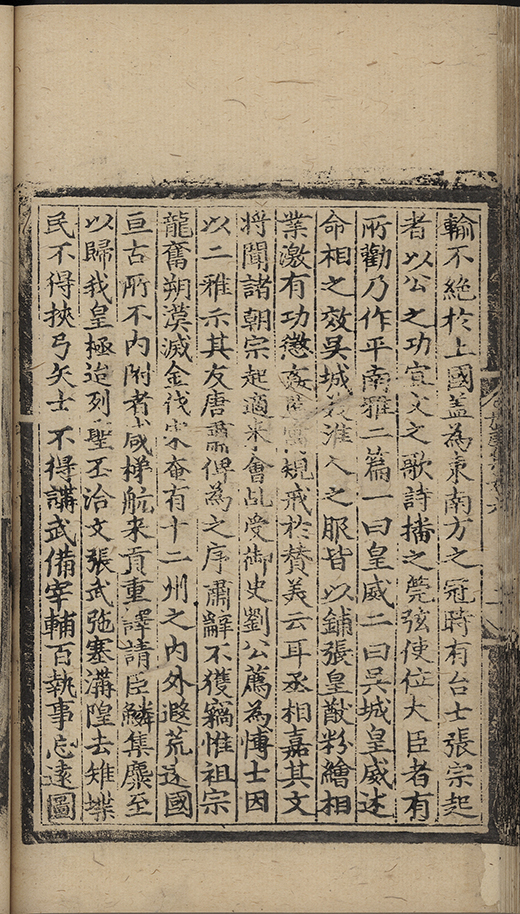 輸不絶於上國盖為東南方之冠時有台士張宗起
者以公之功宣父之歌詩播之筦弦使位大臣者有
所勸乃作平南雅二篇一曰皇威二曰吳城皇威述
命相之效吳城美淮人之服皆以鋪張皇猷粉繪相
業激有功懲姦規戒於賛美云耳丞相嘉其文
將聞諸朝宗起適来會乩受御史劉公薦為愽士因
以二雅示其友唐肅俾為之序肅辭不獲竊惟祖宗
龍奮朔漠滅金伐宋奄有十二州之内外遐荒逺國
亘古所不内附者咸梯航来貢重譯請臣鱗集麇至
以歸我皇極迨列聖丕洽文張武弛塞溝隍去雉堞
民不得挾弓矢士不得講武備宰輔百執事忘遠圖